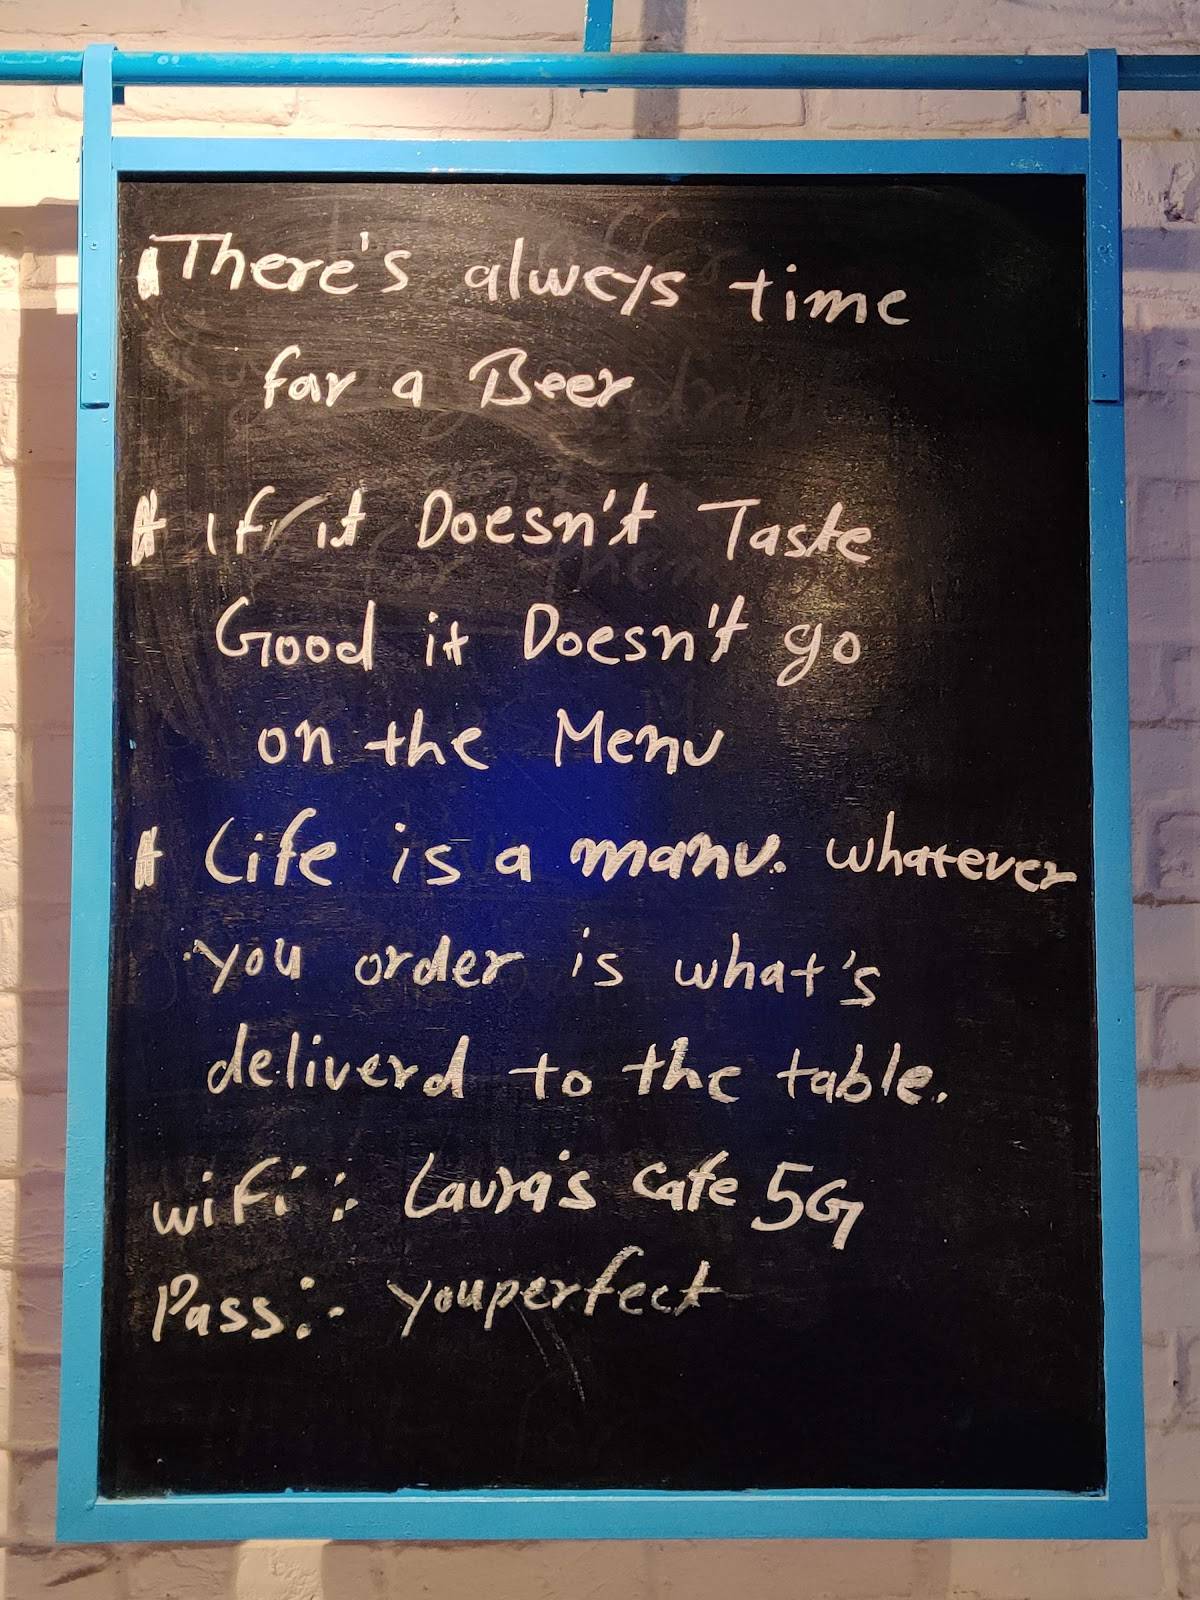 There's always time
far a Beer
# If it Doesn't Taste
Good it Doesn't go
on the Menu
# Life is a manu. whatever
you order is what's
deliverd to the table.
wifi :- Laura's Cafe 5G
Pass :- youperfect